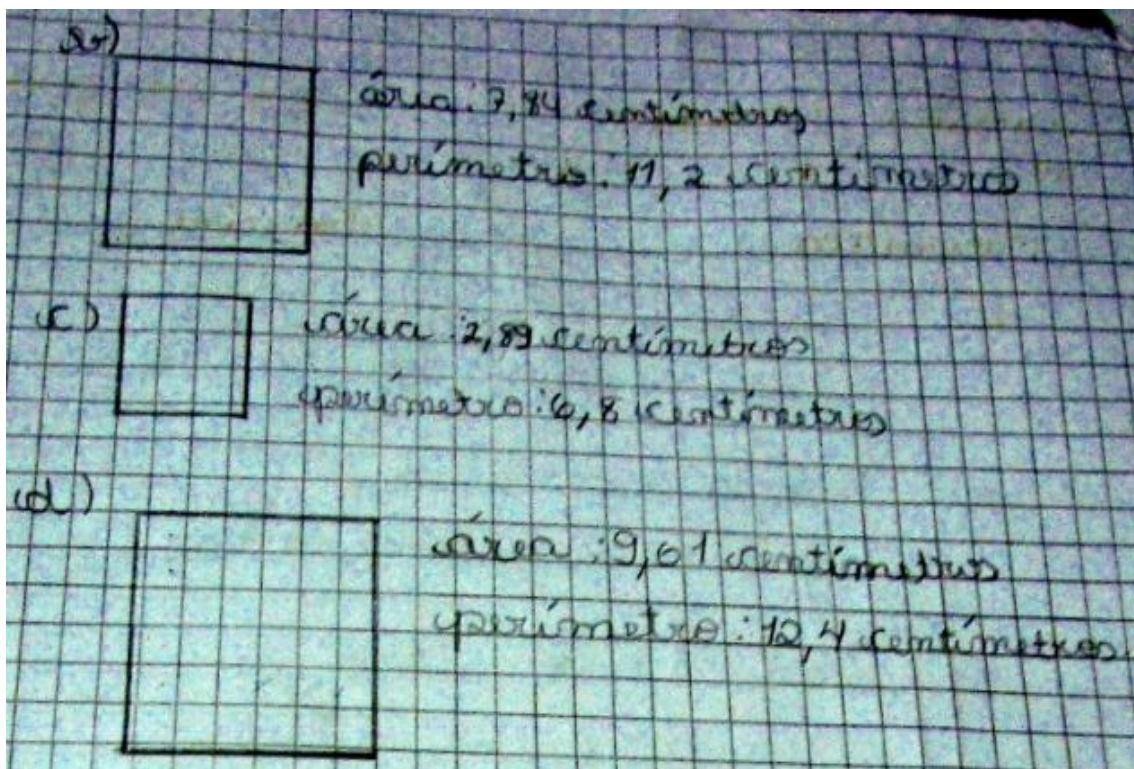 b)
área: 7,84 centímetros
perímetro: 11,2 centímetros
c)
área: 2,89 centímetros
perímetro: 6,8 centímetros
d)
área: 9,61 centímetros
perímetro: 12,4 centímetros